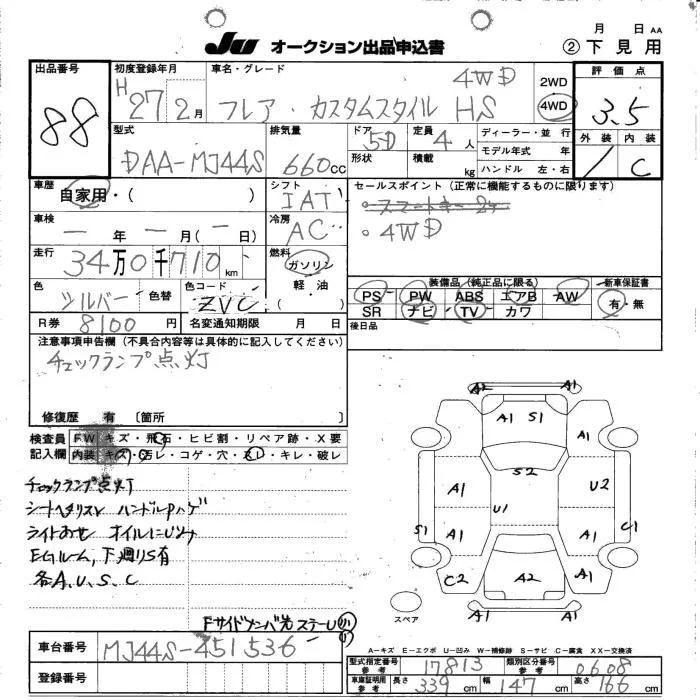 月 日 AA
JU オークション出品申込書 ② 下見用
出品番号 88
初度登録年月 H27年2月
車名・グレード フレア・カスタムスタイル HS 4WD
2WD 4WD
評価点 3.5
外装 / 内装 C
型式 DAA-MJ44S
排気量 660cc
ドア 5D 形状
定員 4人 積載 kg
ディーラー・並行
モデル年式 年
ハンドル 左・右
車歴 自家用・( )
シフト IAT
セールスポイント(正常に機能するものに限ります)
。スマートキー2ケ
。4WD
車検 ー年ー月(ー日)
冷房 AC
走行 34万0千710km
燃料 ガソリン 軽油 ( )
色 シルバー 色替
色コード ZVC
装備品(純正品に限る) 新車保証書
PS PW ABS エアB AW 有・無
SR ナビ TV カワ
R券 8100円 名変通知期限 月 日
後日品
注意事項申告欄(不具合内容等は具体的に記入してください)
チェックランプ点灯
修復歴 有 〔箇所
検査員記入欄
FW キズ・飛石・ヒビ割・リペア跡・X要
内装 キズ・汚レ・コゲ・穴・スレ・キレ・破レ
チェックランプ点灯
シートヘタリスレ ハンドルPハゲ
ライトあせ オイルにじみ
EGルーム,下廻りS有
各A,U,S,C
Fサイドメンバ先 ステーU
A2 A1
A1 S1 A1
S2
A1 U2
U1
S1 A1 A1 C1
C2 A2 A1
A1 A1
スペア
A-キズ E-エクボ U-凹み W-補修跡 S-サビ C-腐食 XX-交換済
車台番号 MJ44S-451536
登録番号
型式指定番号 参考 17813 類別区分番号 参考 0608
車庫証明用 参考 長さ 339cm 幅 147cm 高さ 166cm